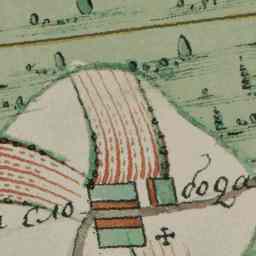 сло бода